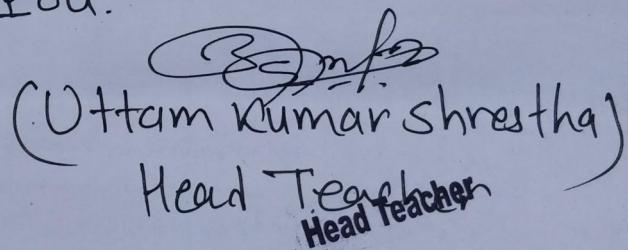 You.
(Uttam Kumar Shrestha)
Head Teacher
Head Teacher